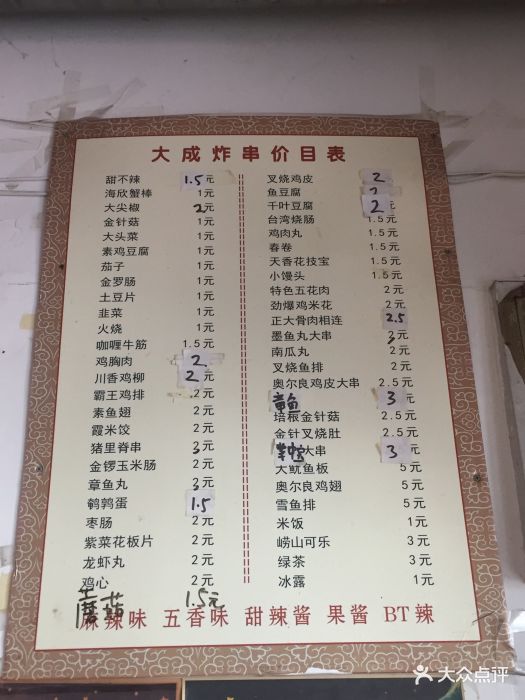 大成炸串价目表
甜不辣 1.5元
海欣蟹棒 1元
大尖椒 2元
金针菇 1元
大头菜 1元
素鸡豆腐 1元
茄子 1元
金罗肠 1元
土豆片 1元
韭菜 1元
火烧 1元
咖喱牛筋 1.5元
鸡胸肉 2
川香鸡柳 2元
霸王鸡排 2元
素鱼翅 2元
霞米饺 2元
猪里脊串 3元
金锣玉米肠 2元
章鱼丸 3元
鹌鹑蛋 1.5
枣肠 2元
紫菜花板片 2元
龙虾丸 2元
鸡心 2元
蘑菇 1.5元
叉烧鸡皮 2
鱼豆腐
千叶豆腐 2
台湾烧肠 1.5元
鸡肉丸 1.5元
春卷 1.5元
天香花技宝 1.5元
小馒头 1.5元
特色五花肉 2元
劲爆鸡米花 2元
正大骨肉相连 2.5
墨鱼丸大串 3元
南瓜丸 2元
叉烧鱼排 2元
奥尔良鸡皮大串 2.5元
章鱼 3
培根金针菇 2.5元
金针叉烧肚 2.5元
大串 3
大鱿鱼板 5元
奥尔良鸡翅 5元
雪鱼排 5元
米饭 1元
崂山可乐 3元
绿茶 3元
冰露 1元
麻辣味 五香味 甜辣酱 果酱 BT辣
大众点评